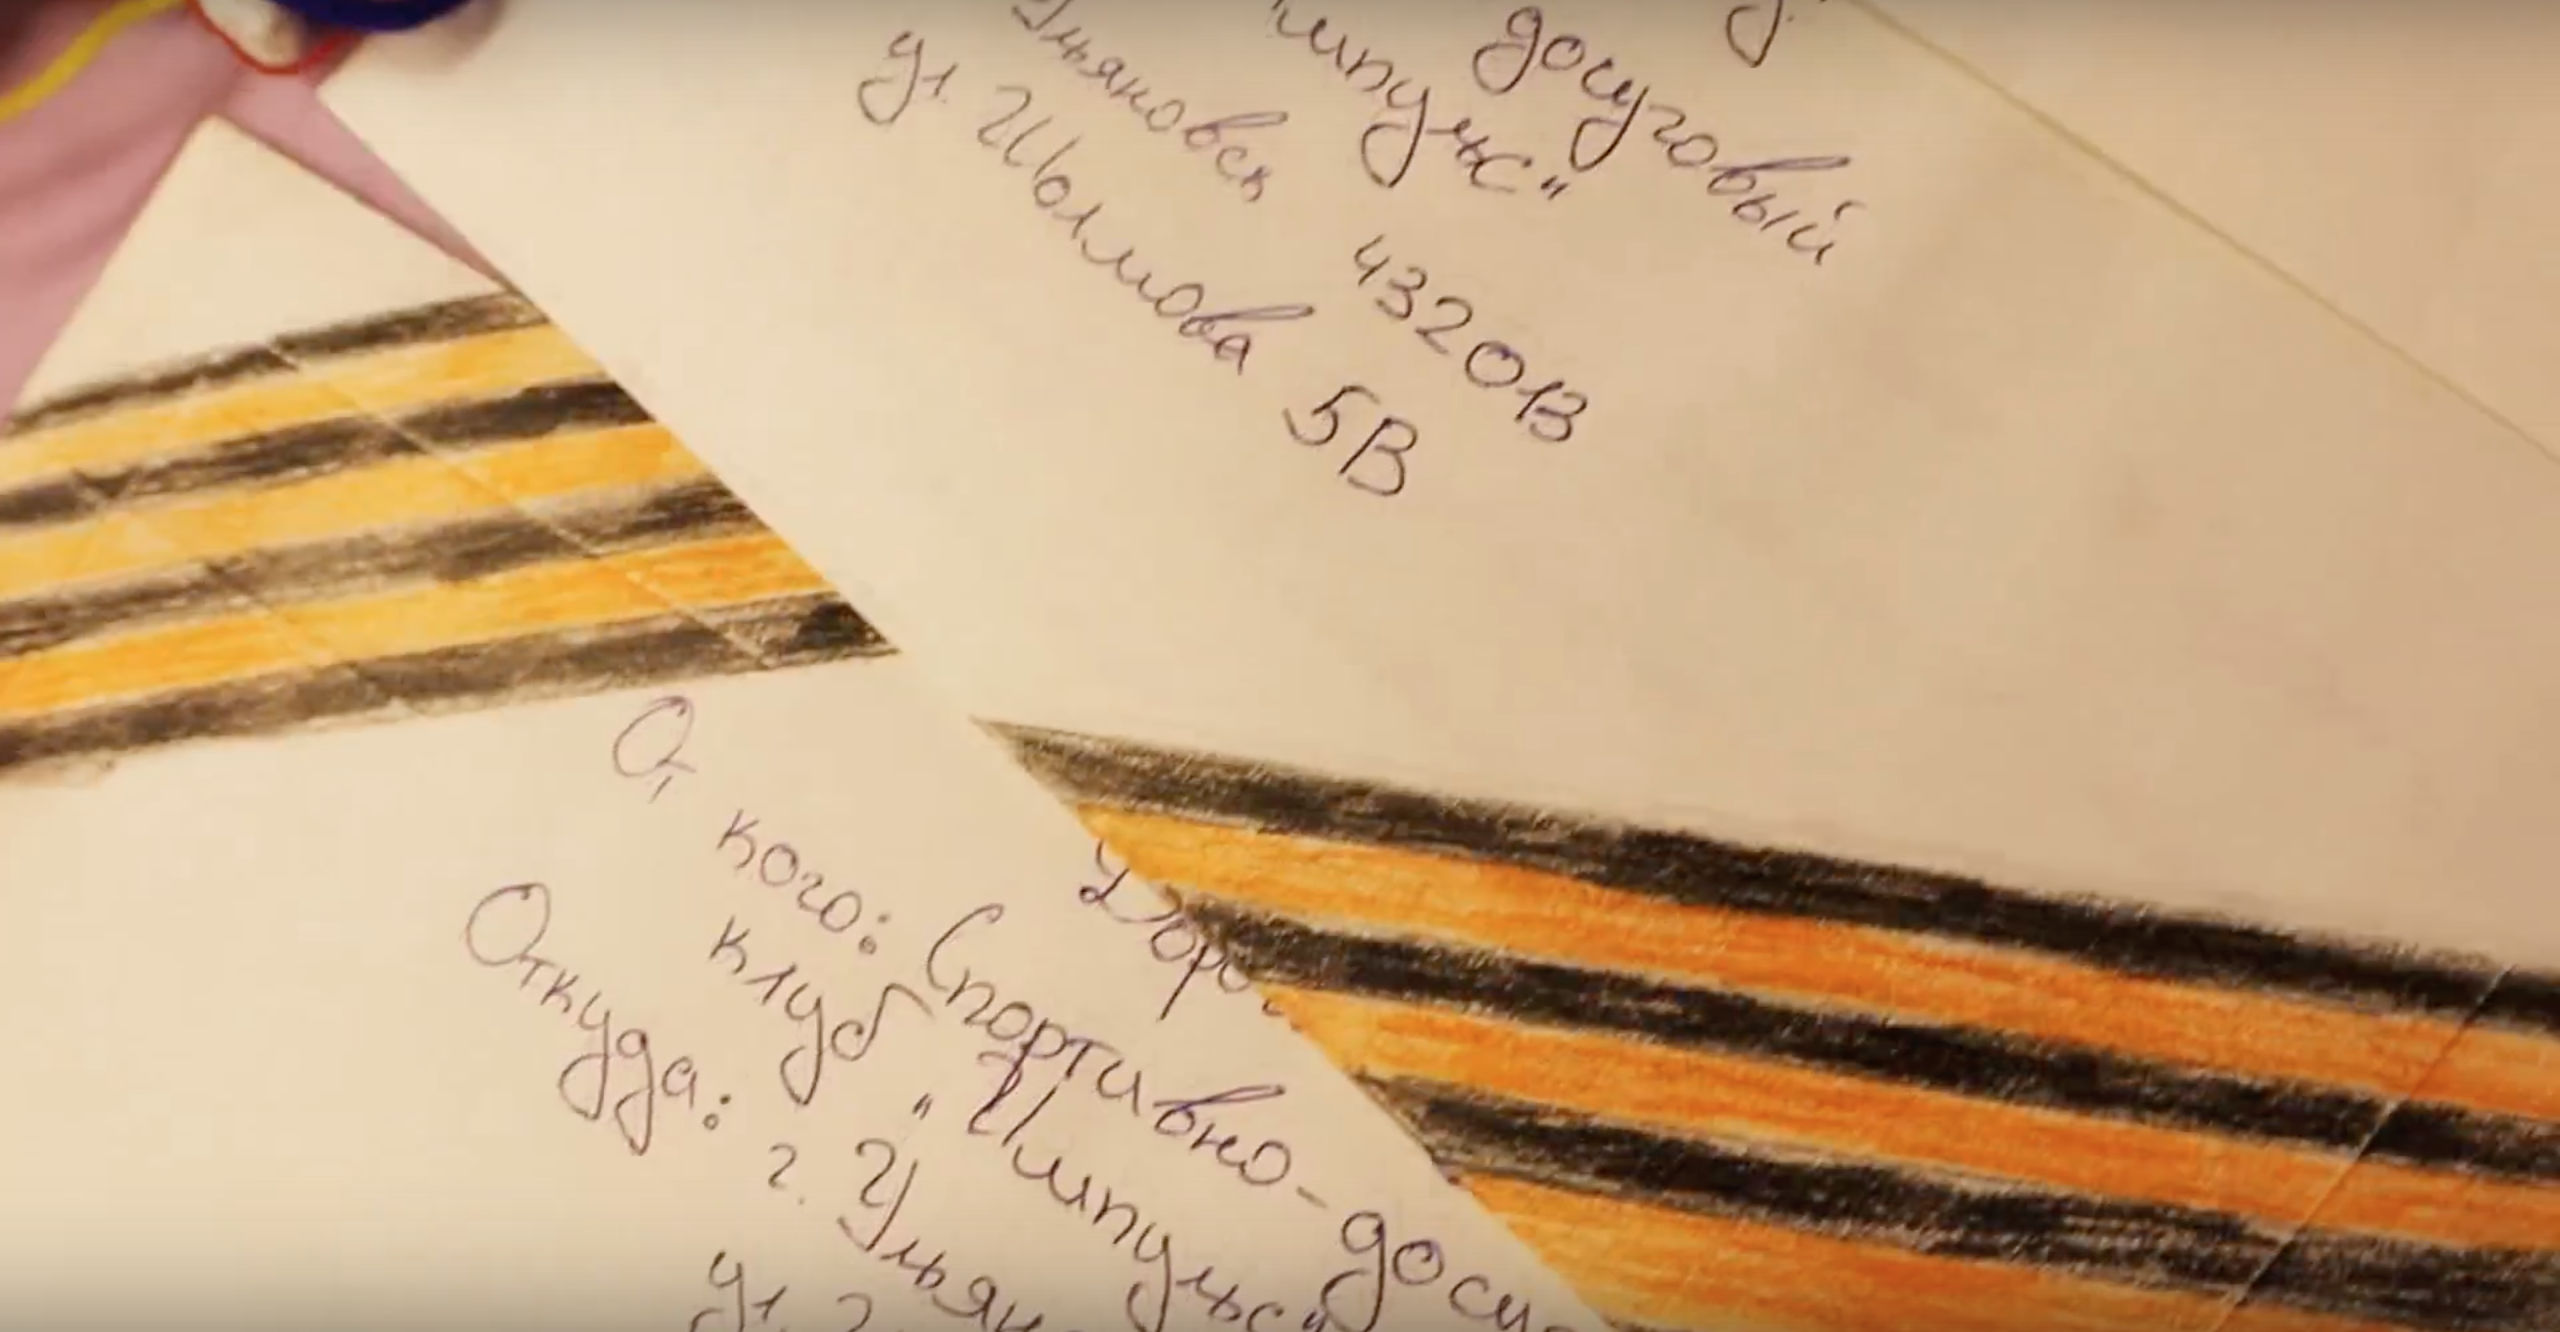 досуговый
мпульс"
льяновск 432013
ул. Шолмова 5В
От кого: Спортивно-досу
клуб "Импульс"
Откуда: г. Ульян
ул.
Доро